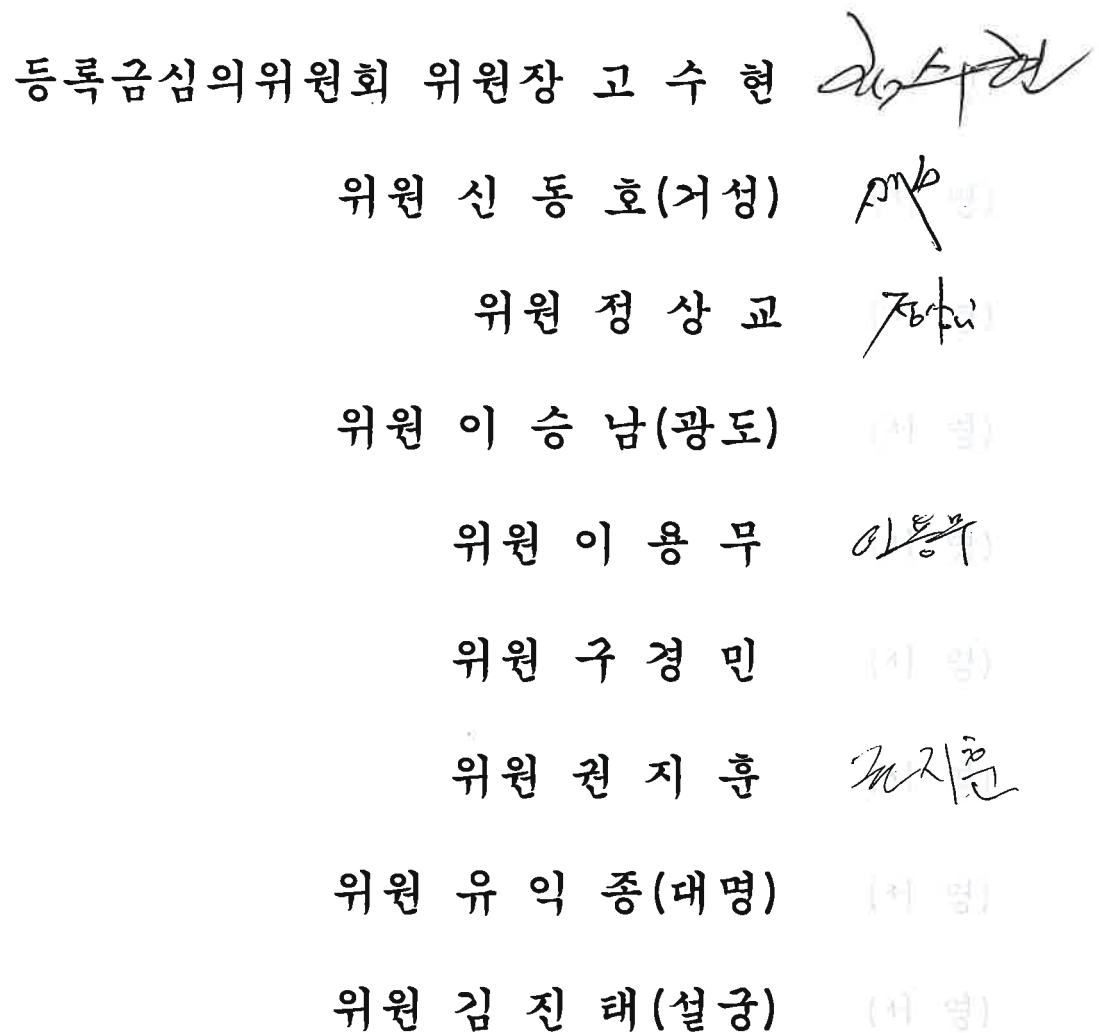 등록금심의위원회 위원장 고 수 현 고수현
위원 신 동 호(거성) (서 명)
위원 정 상 교 정상교
위원 이 승 남(광도) (서 명)
위원 이 용 무 이용무
위원 구 경 민 (서 명)
위원 권 지 훈 권지훈
위원 유 익 종(대명) (서 명)
위원 김 진 태(설궁) (서 명)